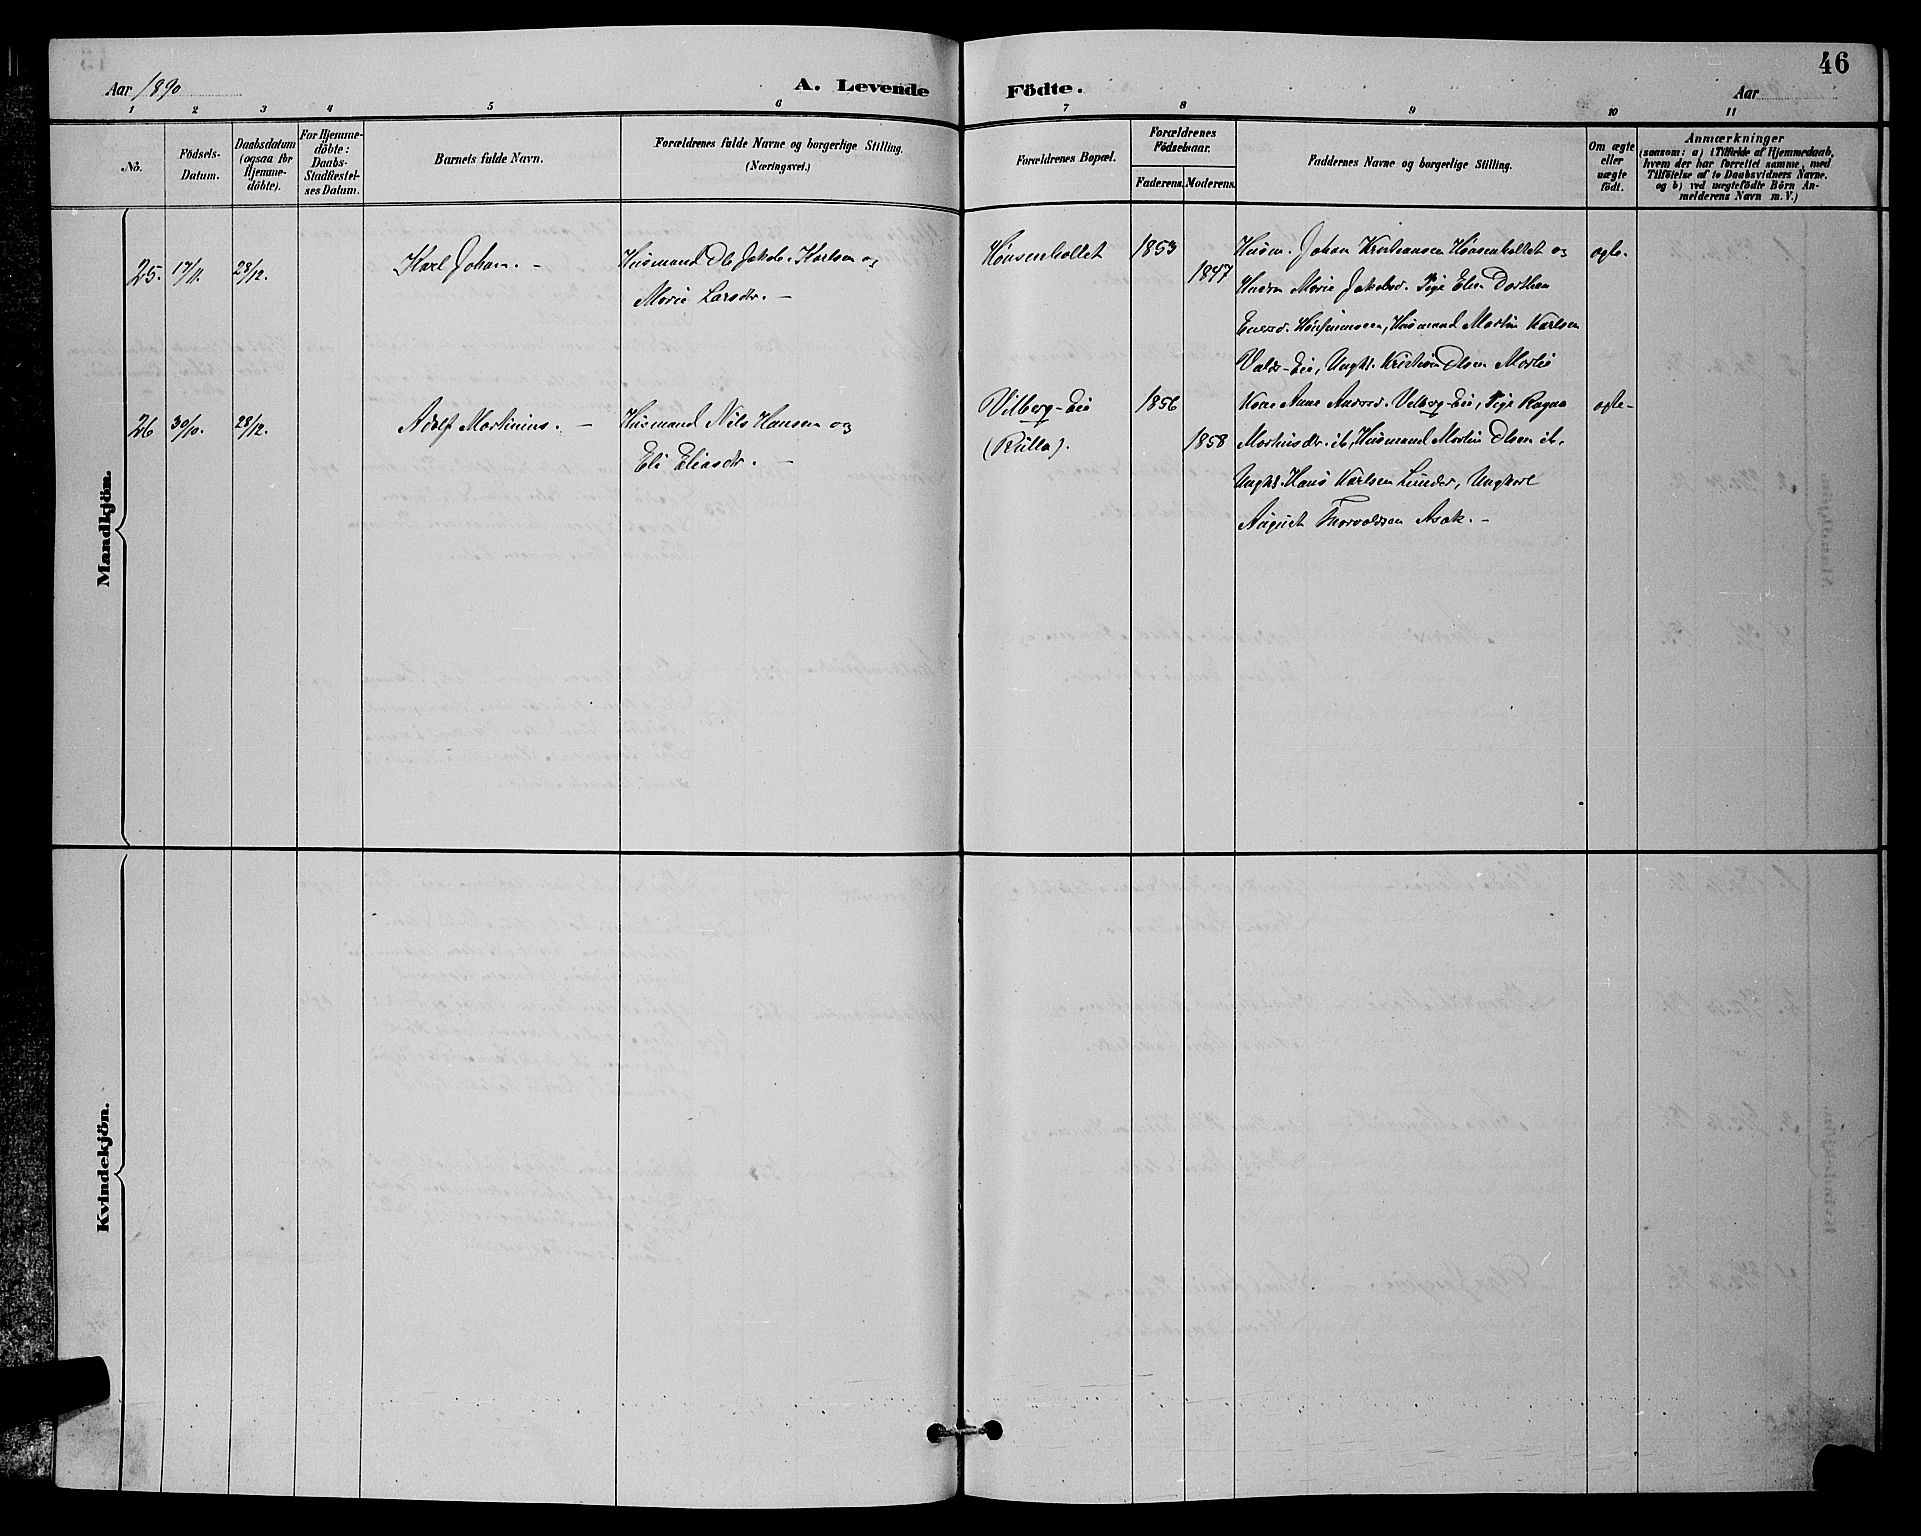 46
Aar 1890
A. Levende Födte.
Aar
1 2 3 4 5 6 7 8 9 10 11
No.
Födsels-
Datum.
Daabsdatum
(ogsaa for
Hjemme-
döbte).
For Hjemme-
döbte:
Daabs-
Stadfæstel-
ses Datum.
Barnets fulde Navn.
Forældrenes fulde Navne og borgerlige Stilling.
(Næringsvei.)
Forældrenes Bopæl.
Forældrenes
Födselsaar.
Faderens. Moderens.
Faddernes Navne og borgerlige Stilling.
Om ægte
eller
uægte
født.
Anmærkninger
(saasom: a) i Tilfælde af Hjemmedaab,
hvem der har forrettet samme, med
Tilföielse af to Daabsvidners Navne.
og b) ved uægtefödte Börn An-
melderens Navn m. V.)
Mandkjön.
25. 17/11. 28/12. Karl Johan. — Husmand Ole Jakob Karlsen og
Marie Larsdr. —
Hønsenholtet 1853 1847
Husm. Johan Kristiansen Hønsenholtet og
Hustru Marie Jakobsd. Pige Elen Dorthea
Husmand Martin Karlsen
Valds-Eie, Ungk. Kristian Olsen
ægte.
26 30/10. 28/12. Adolf Martinius. — Husmand Nils Hansen og
Eli Eliasdr. —
Vilberg-Eie
(Rulla).
1856 1858
Kone Anne Andersd. Vilberg-Eie, Pige Ragna
Martinsdr. ib, Husmand Martin Olsen ib,
Ungk. Hans Karlsen Linder, Ungkarl
August Thorvaldsen Asak. —
ægte-
Kvindekjön.